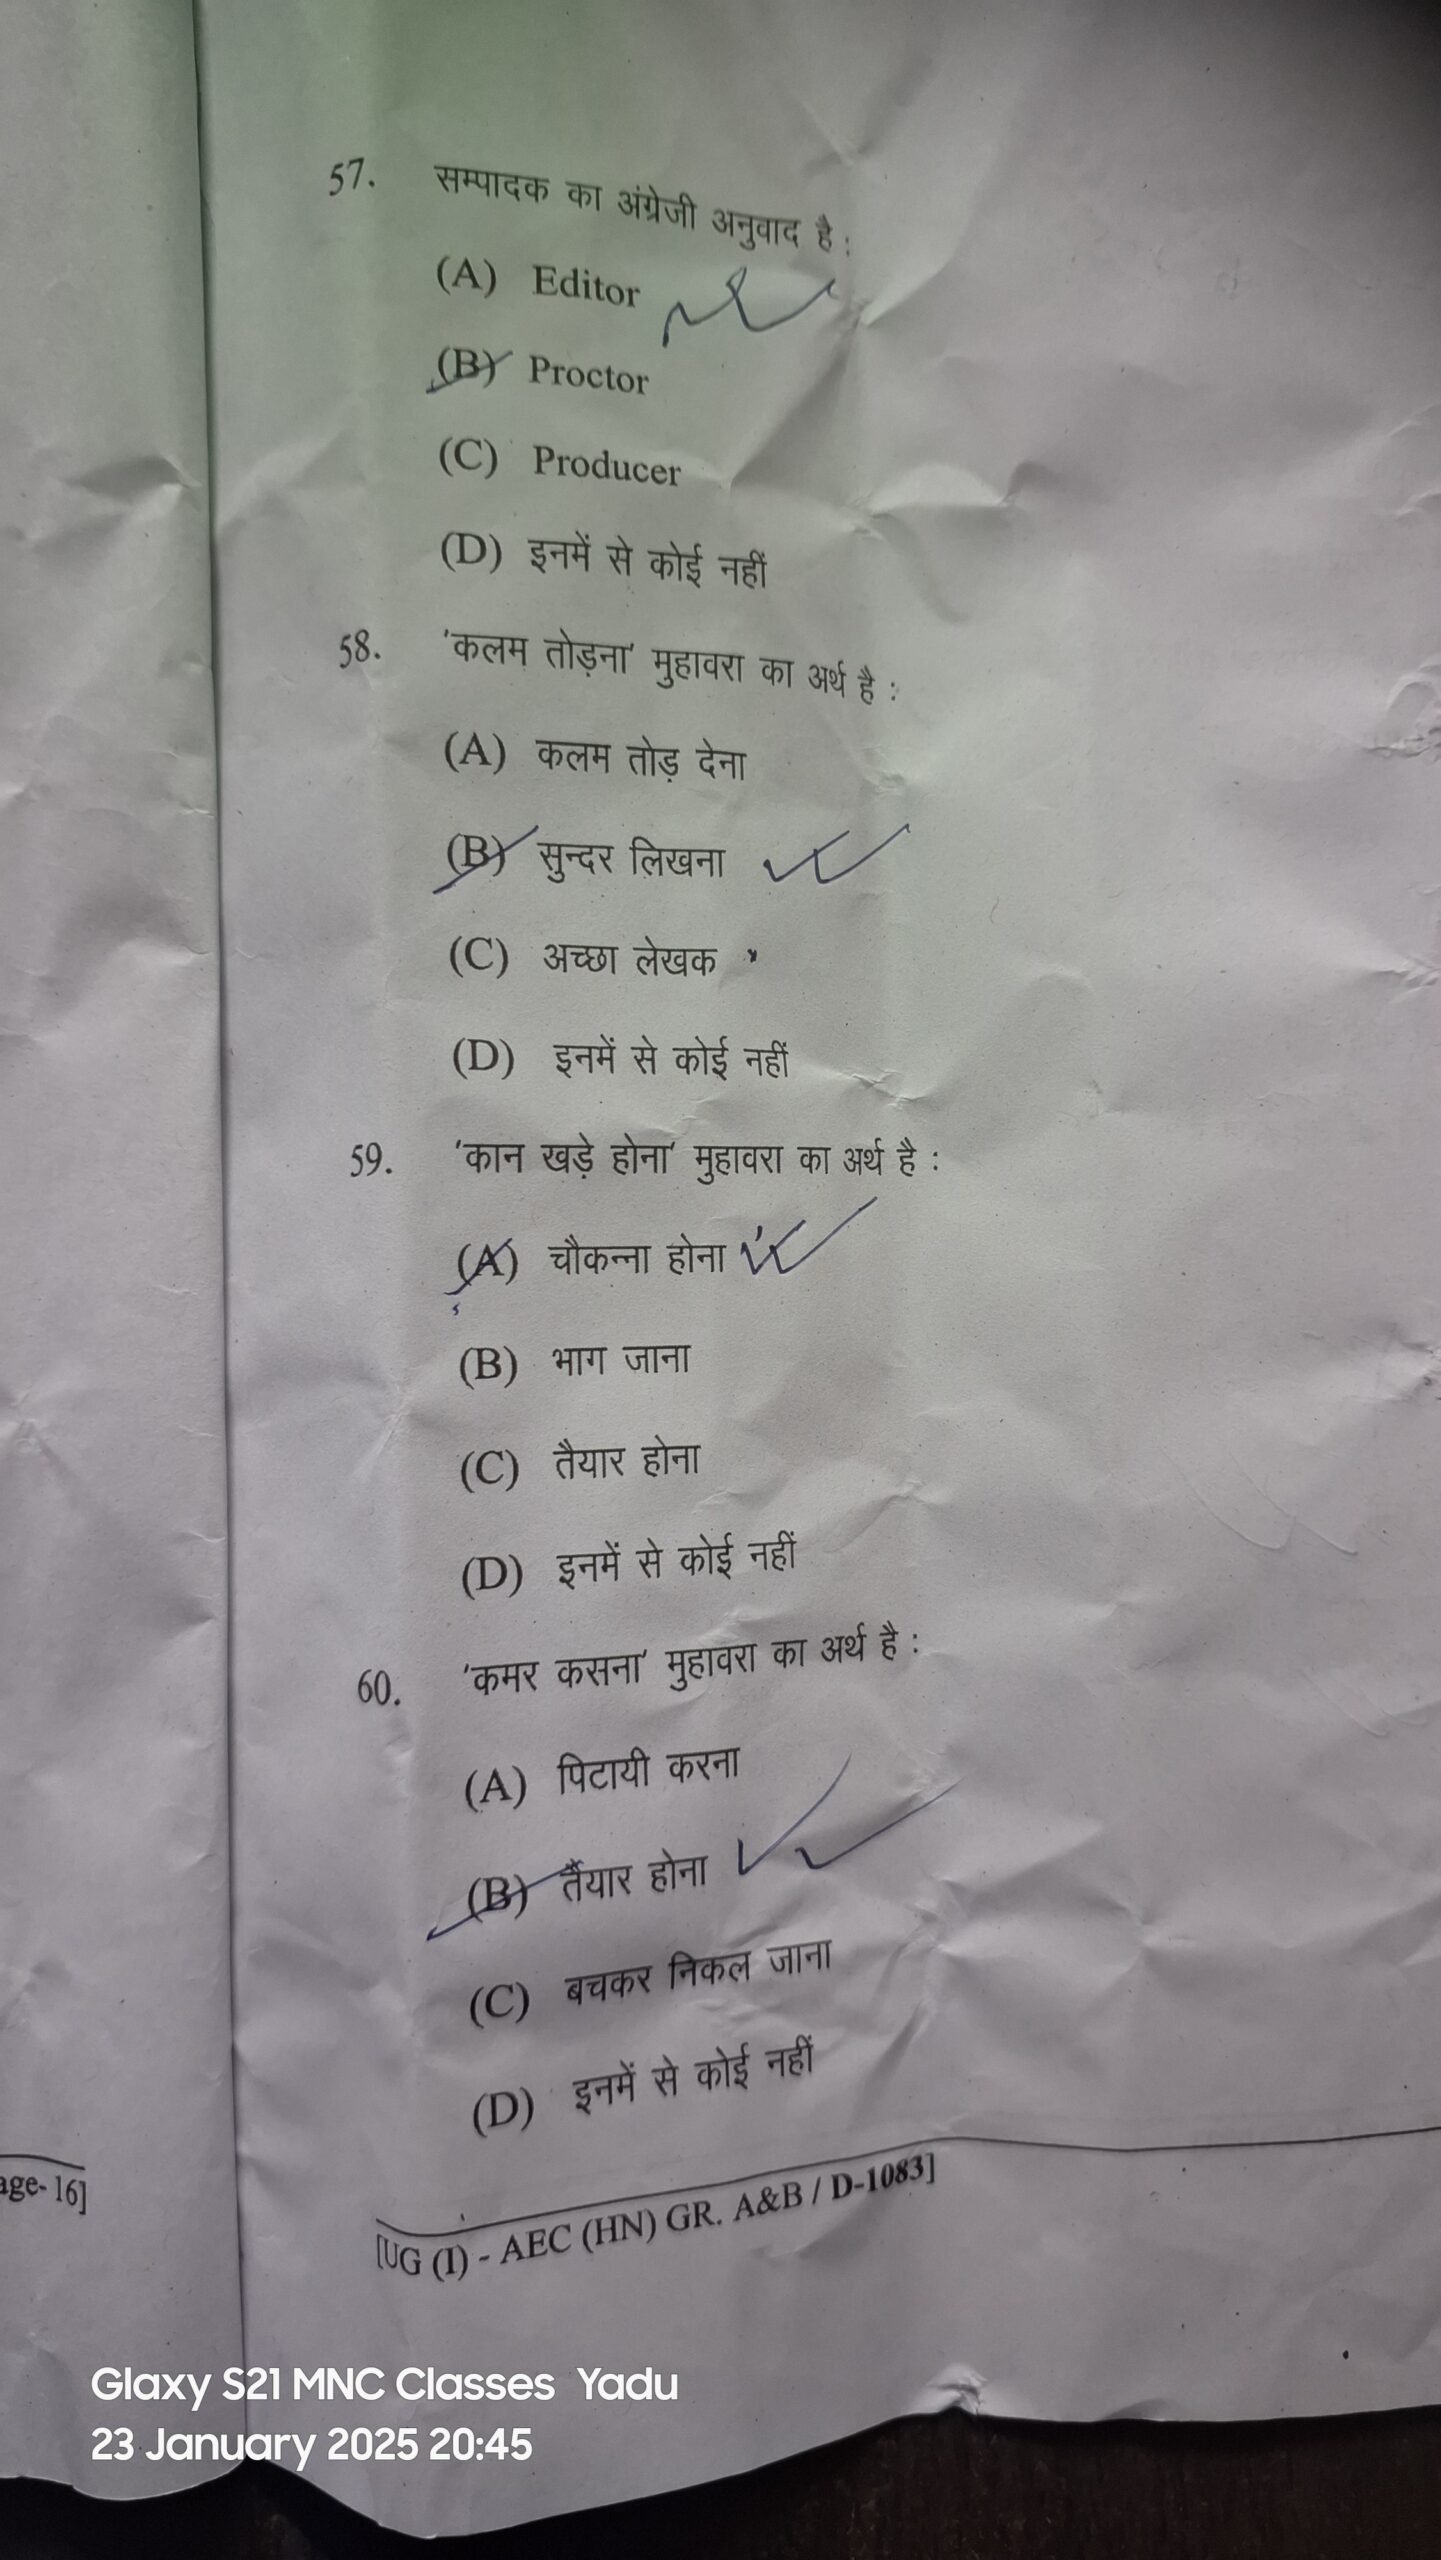 57. सम्पादक का अंग्रेजी अनुवाद है :
(A) Editor
(B) Proctor
(C) Producer
(D) इनमें से कोई नहीं
58. 'कलम तोड़ना' मुहावरा का अर्थ है :
(A) कलम तोड़ देना
(B) सुन्दर लिखना
(C) अच्छा लेखक
(D) इनमें से कोई नहीं
59. 'कान खड़े होना' मुहावरा का अर्थ है :
(A) चौकन्ना होना
(B) भाग जाना
(C) तैयार होना
(D) इनमें से कोई नहीं
60. 'कमर कसना' मुहावरा का अर्थ है :
(A) पिटायी करना
(B) तैयार होना
(C) बचकर निकल जाना
(D) इनमें से कोई नहीं
age-16]
[UG (I) - AEC (HN) GR. A&B / D-1083]
Glaxy S21 MNC Classes Yadu
23 January 2025 20:45